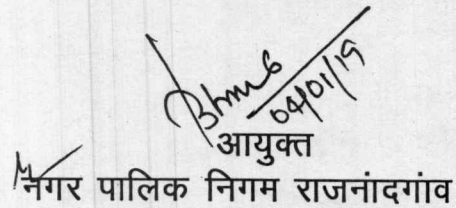 04/01/19
आयुक्त
नगर पालिक निगम राजनांदगांव